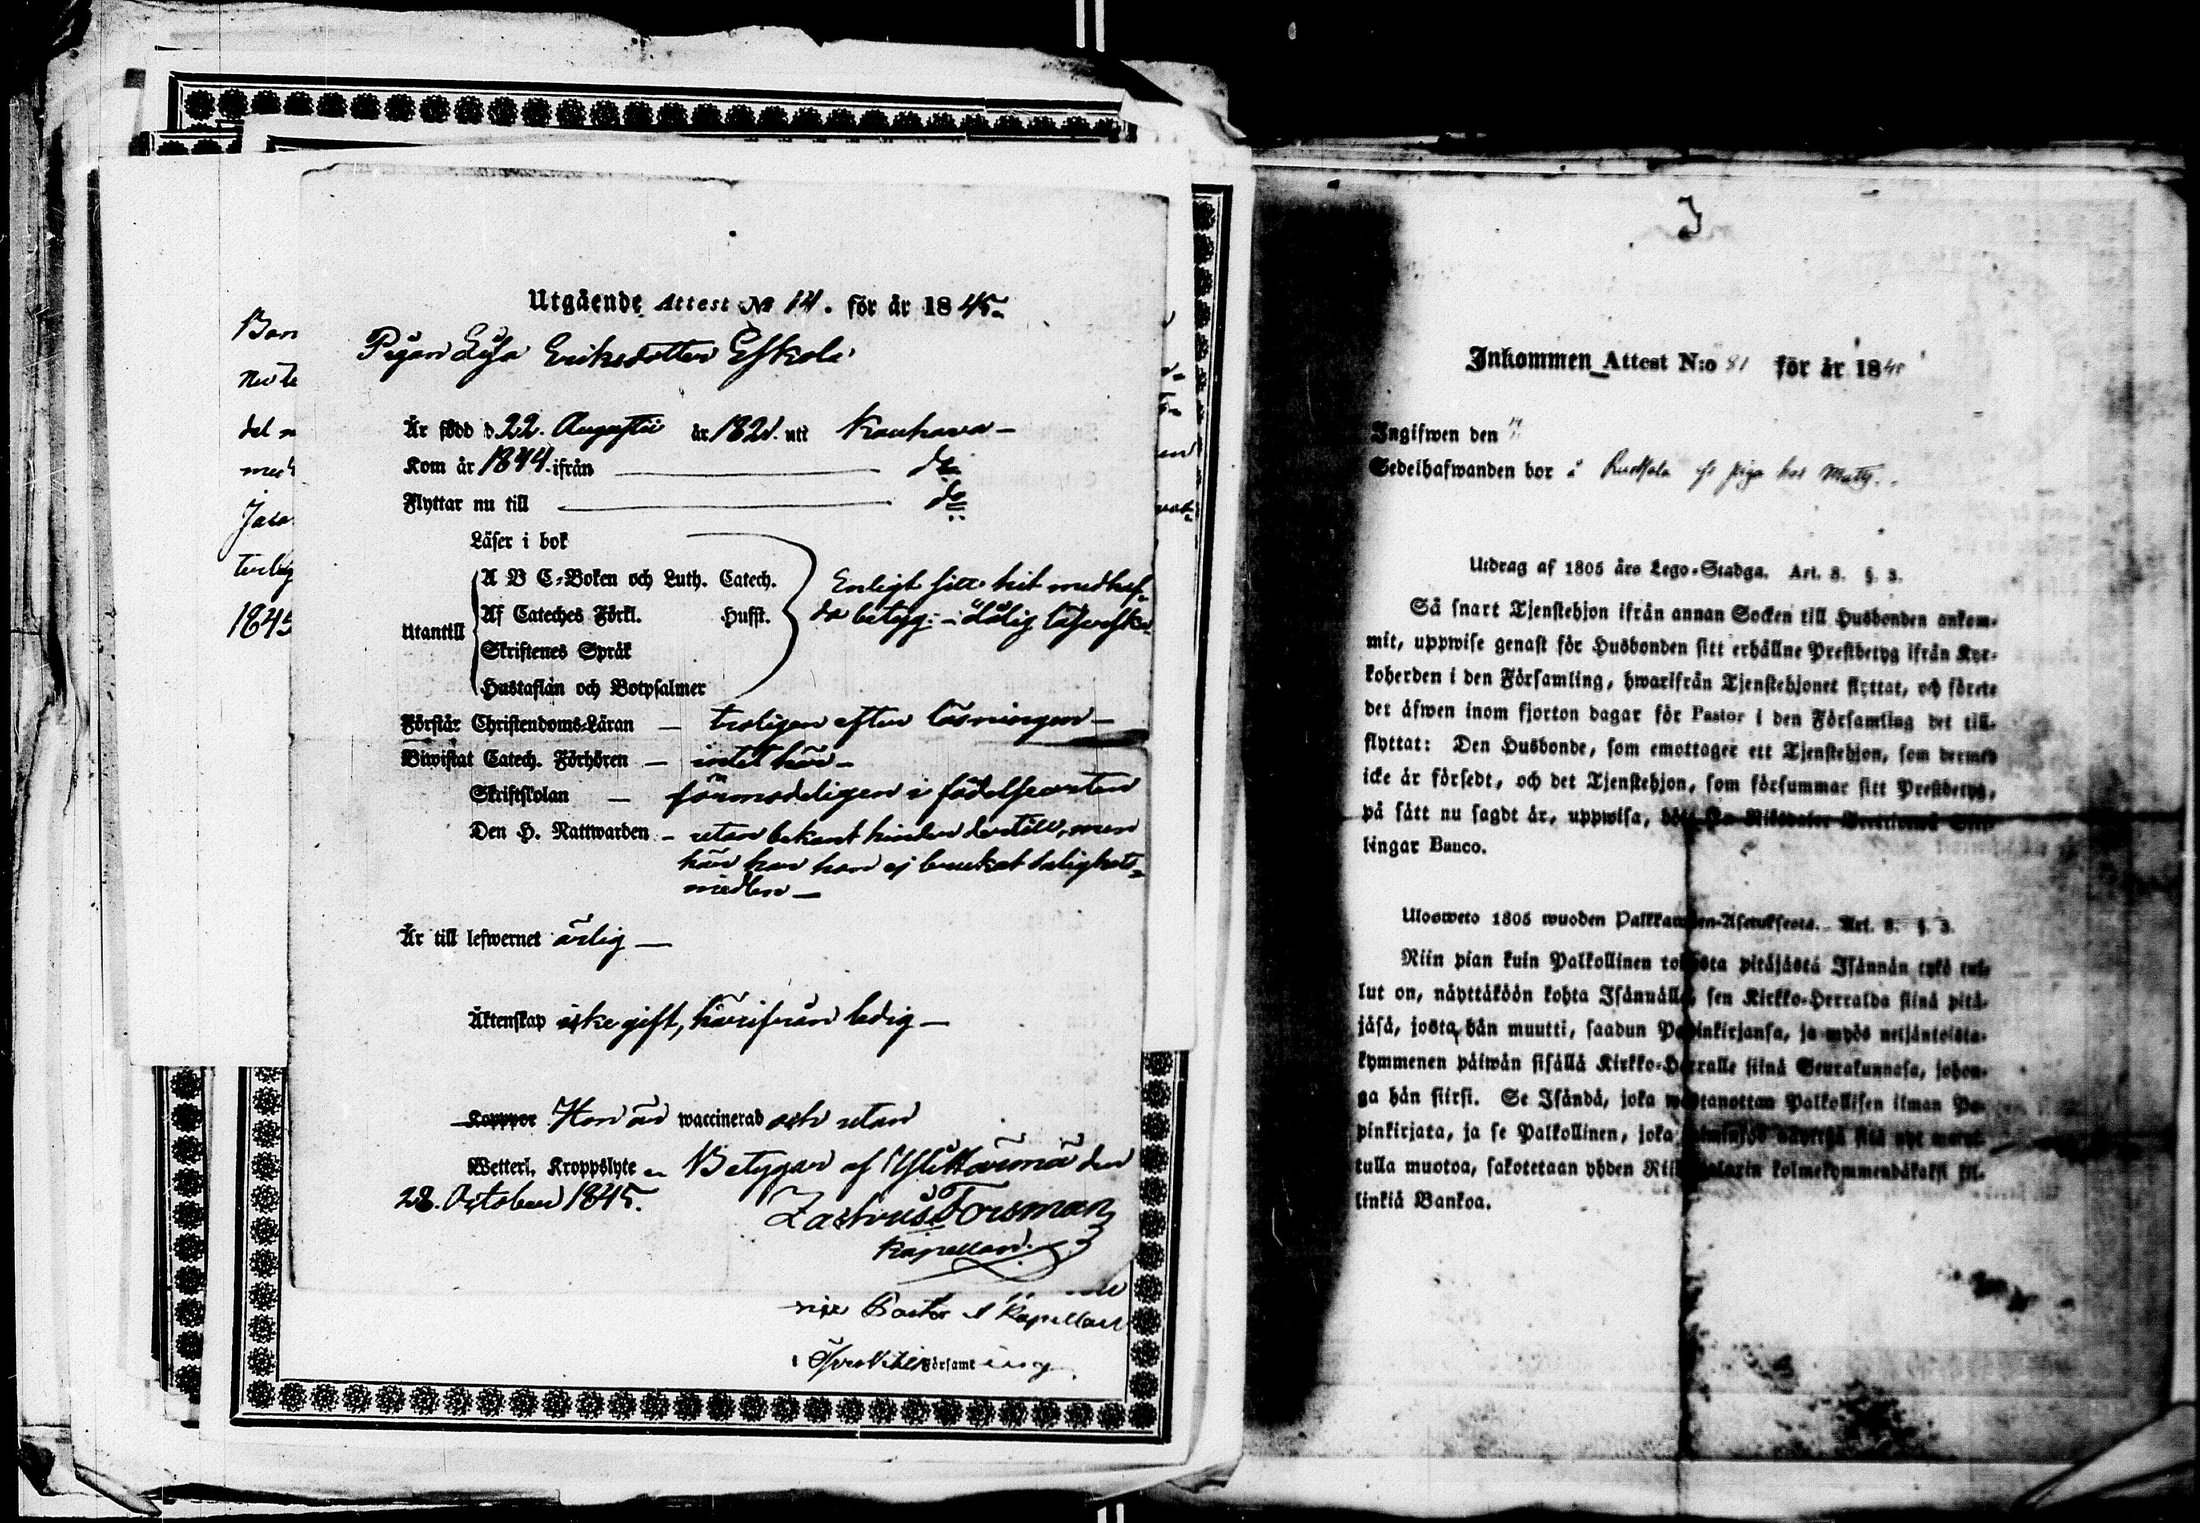 Utgående Attest No 14. för år 1845.
Pigan Lisa Eriksdotter Eskola
Är född d 22. Augustii år 1821. uti Kauhava —
Kom år 1844. ifrån — do
Flyttar nu till — do
Läser i bok
Utantill
A B C-Boken och Luth. Catech.
Af Cateches Förkl. Husst.
Skriftenes Språk
Hustaflan och Botpsalmer
Enligt sitt hit medhaf-
da betyg: — dålig läserska
Förstår Christendoms-Läran — troligen efter läsningen —
Biwistat Catech. Förhören — intet här —
Skriftskolan — förmodeligen i födelseorten
Den H. Nattwarden — utan bekant hinder dertill, men
här har hon ej brukat salighets-
medlen —
Är till lefwernet ärlig —
Äktenskap icke gift, härifrån ledig —
Koppor Hon är waccinerad och utan
Wetterl. Kroppslyte — Betygar af Ylihärmä den
28. October 1845. Zachris Forsman
Kapellan.
Pastor & Kapellan
Församl
Ban
del
med
Jaco
1845
Inkommen Attest N:o 81 för år 1845
Ingifwen den
Sedelhafwanden bor å piga hos Matts.
Utdrag af 1805 års Lego-Stadga. Art. 8. §. 3.
Så snart Tjenstehjon ifrån annan Socken till Husbonden ankom-
mit, uppwise genast för Husbonden sitt erhållne Prestbetyg ifrån Kyr-
koherden i den Församling, hwarifrån Tjenstehjonet flyttat, och förete
det äfwen inom fjorton dagar för Pastor i den Församling det till-
flyttat: Den Husbonde, som emottager ett Tjenstehjon, som dermed
icke är försedt, och det Tjenstehjon, som försummar sitt Prestbetyg,
på sätt nu sagdt är, uppwisa,
lingar Banco.
Ulosweto 1805 wuoden Palkkawäen-Asetuksesta. Art. 8. §. 3.
Niin pian kuin Palkollinen toisesta pitäjästä Isännän tykö tul-
lut on, näyttäköön kohta Isännälle, sen Kirkko-Herralda siinä pitä-
jäsä, josta hän muutti, saadun Papinkirjansa, ja myös neljäntoista-
kymmenen päiwän sisällä Kirkko-Herralle siinä Seurakunnasa, johon-
ga hän siirsi. Se Isändä, joka wastanottaa Palkollisen ilman Pa-
pinkirjata, ja se Palkollinen, joka
tulla muotoa, sakotetaan yhden Riikintalarin kolmekymmendäkaksi kil-
linkiä Bankoa.